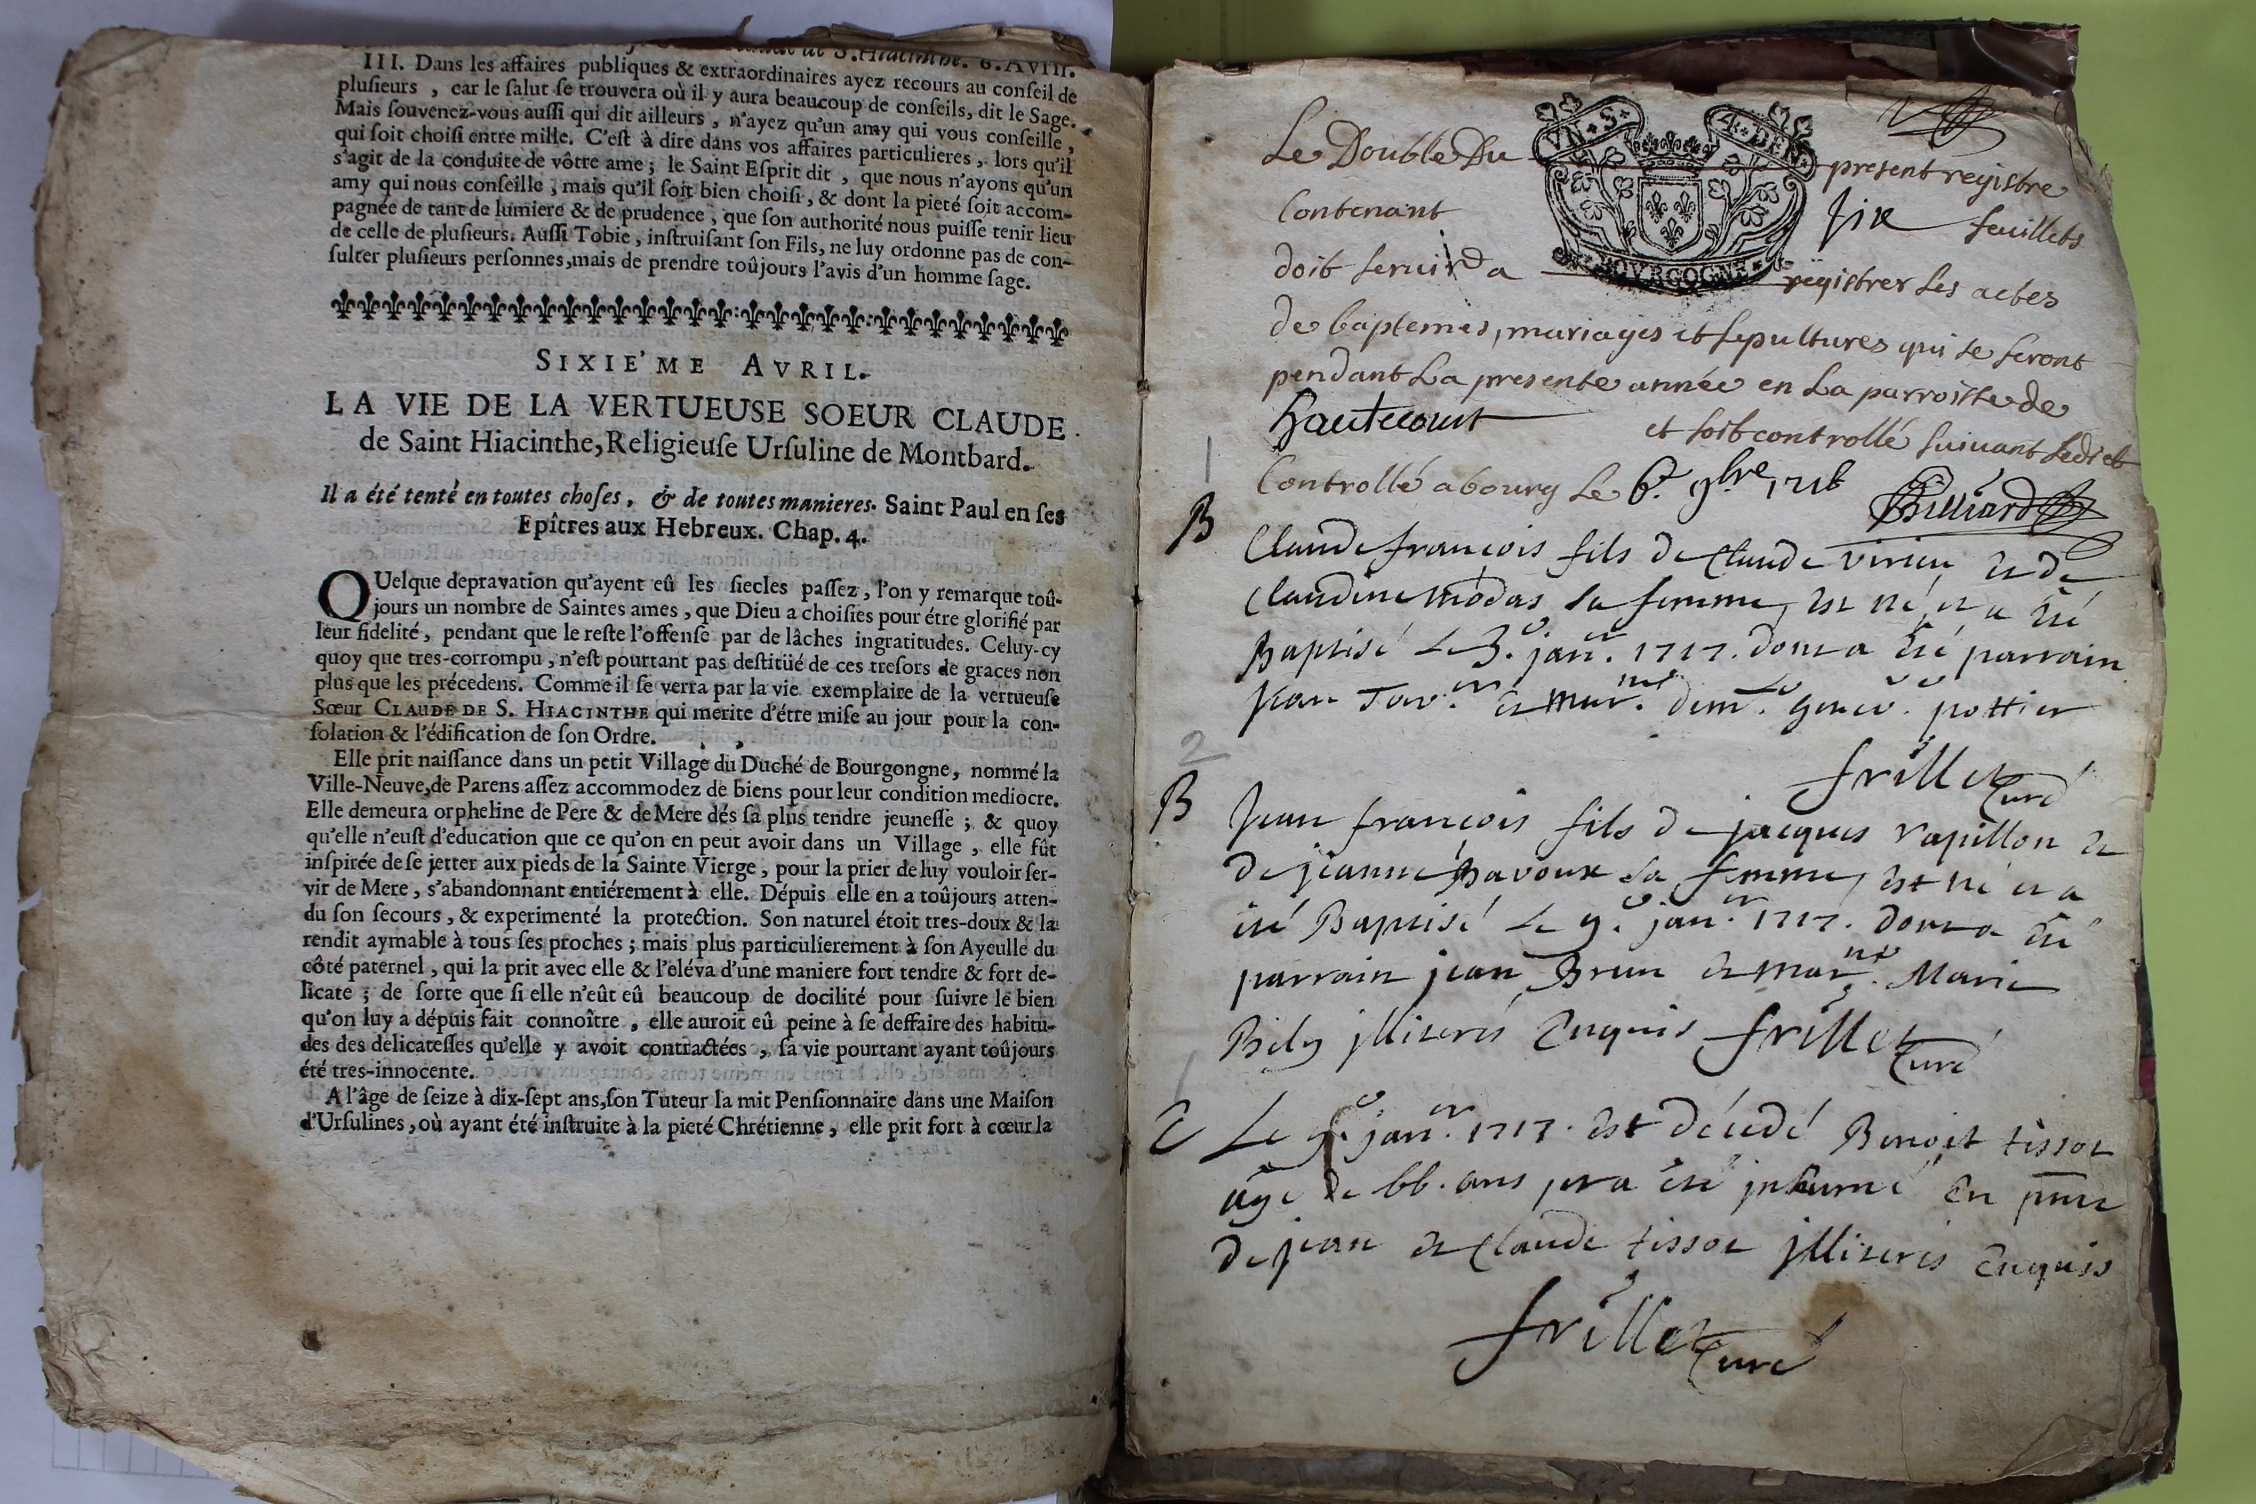 de S. Hiacinthe. 6. Avril.
III. Dans les affaires publiques & extraordinaires ayez recours au conſeil de
pluſieurs, car le ſalut ſe trouvera où il y aura beaucoup de conſeils, dit le Sage.
Mais ſouvenez-vous auſſi qui dit ailleurs, n'ayez qu'un amy qui vous conſeille,
qui ſoit choiſi entre mille. C'eſt à dire dans vos affaires particulieres, lors qu'il
s'agit de la conduite de vôtre ame; le Saint Eſprit dit, que nous n'ayons qu'un
amy qui nous conſeille, mais qu'il ſoit bien choiſi, & dont la pieté ſoit accom-
pagnée de tant de lumiere & de prudence, que ſon authorité nous puiſſe tenir lieu
de celle de pluſieurs. Auſſi Tobie, inſtruiſant ſon Fils, ne luy ordonne pas de con-
ſulter pluſieurs perſonnes, mais de prendre toûjours l'avis d'un homme ſage.
SIXIE'ME AVRIL.
LA VIE DE LA VERTUEUSE SOEUR CLAUDE
de Saint Hiacinthe, Religieuſe Urſuline de Montbard.
Il a été tenté en toutes choſes, & de toutes manieres. Saint Paul en ſes
Epîtres aux Hebreux. Chap. 4.
QUelque depravation qu'ayent eû les ſiecles paſſez, l'on y remarque toû-
jours un nombre de Saintes ames, que Dieu a choiſies pour étre glorifié par
leur fidelité, pendant que le reſte l'offenſe par de lâches ingratitudes. Celuy-cy
quoy que tres-corrompu, n'eſt pourtant pas deſtitüé de ces treſors de graces non
plus que les précedens. Comme il ſe verra par la vie exemplaire de la vertueuſe
Sœur CLAUDE DE S. HIACINTHE qui merite d'étre miſe au jour pour la con-
ſolation & l'édification de ſon Ordre.
Elle prit naiſſance dans un petit Village du Duché de Bourgongne, nommé la
Ville-Neuve, de Parens aſſez accommodez de biens pour leur condition mediocre.
Elle demeura orpheline de Pere & de Mere dés ſa plus tendre jeuneſſe; & quoy
qu'elle n'euſt d'education que ce qu'on en peut avoir dans un Village, elle fût
inſpirée de ſe jetter aux pieds de la Sainte Vierge, pour la prier de luy vouloir ſer-
vir de Mere, s'abandonnant entiérement à elle. Dépuis elle en a toûjours atten-
du ſon ſecours, & experimenté la protection. Son naturel étoit tres-doux & la
rendit aymable à tous ſes proches; mais plus particulierement à ſon Ayeulle du
côté paternel, qui la prit avec elle & l'eléva d'une maniere fort tendre & fort de-
licate; de ſorte que ſi elle n'eût eû beaucoup de docilité pour ſuivre le bien
qu'on luy a dépuis fait connoître, elle auroit eû peine à ſe deffaire des habitu-
des des delicateſſes qu'elle y avoit contractées, ſa vie pourtant ayant toûjours
été tres-innocente.
A l'âge de ſeize à dix-ſept ans, ſon Tuteur la mit Penſionnaire dans une Maiſon
d'Urſulines, où ayant été inſtruite à la pieté Chrétienne, elle prit fort à cœur la
VN · S · 4 · DEN ·
BOVRGOGNE
Le Double Du present registre
Contenant six feuillets
doit seruir a registrer les actes
de baptemes, mariages et sepultures qui se feront
pendant La presente année en La parroisse de
hautecourt et soit controllé suiuant ledict
1
Controllé a bourg Le 6e 9bre 1716
Billiard
B
Claude françois fils de Claude virieu et de
Claudine modas sa femme, est né, et a été
Baptisé Le 3e. janer. 1717. dont a été parrain
jean et mar.ne dem.le genev. pottier
frillet curé
2
B
jean françois fils de jacques rapillon et
de jeanne havoux sa femme, est né et a
été Baptisé Le 9e. janer. 1717. dont a été
parrain jean Brun et marne. Marie
Bely jlliterés enquis frillet curé
1
E
Le 9e. janer. 1717. est décedé Benoit tissot
âgé de 66. ans, et a été jnhumé en pnce
de jean et Claude tissot jlliterés enquis
frillet curé